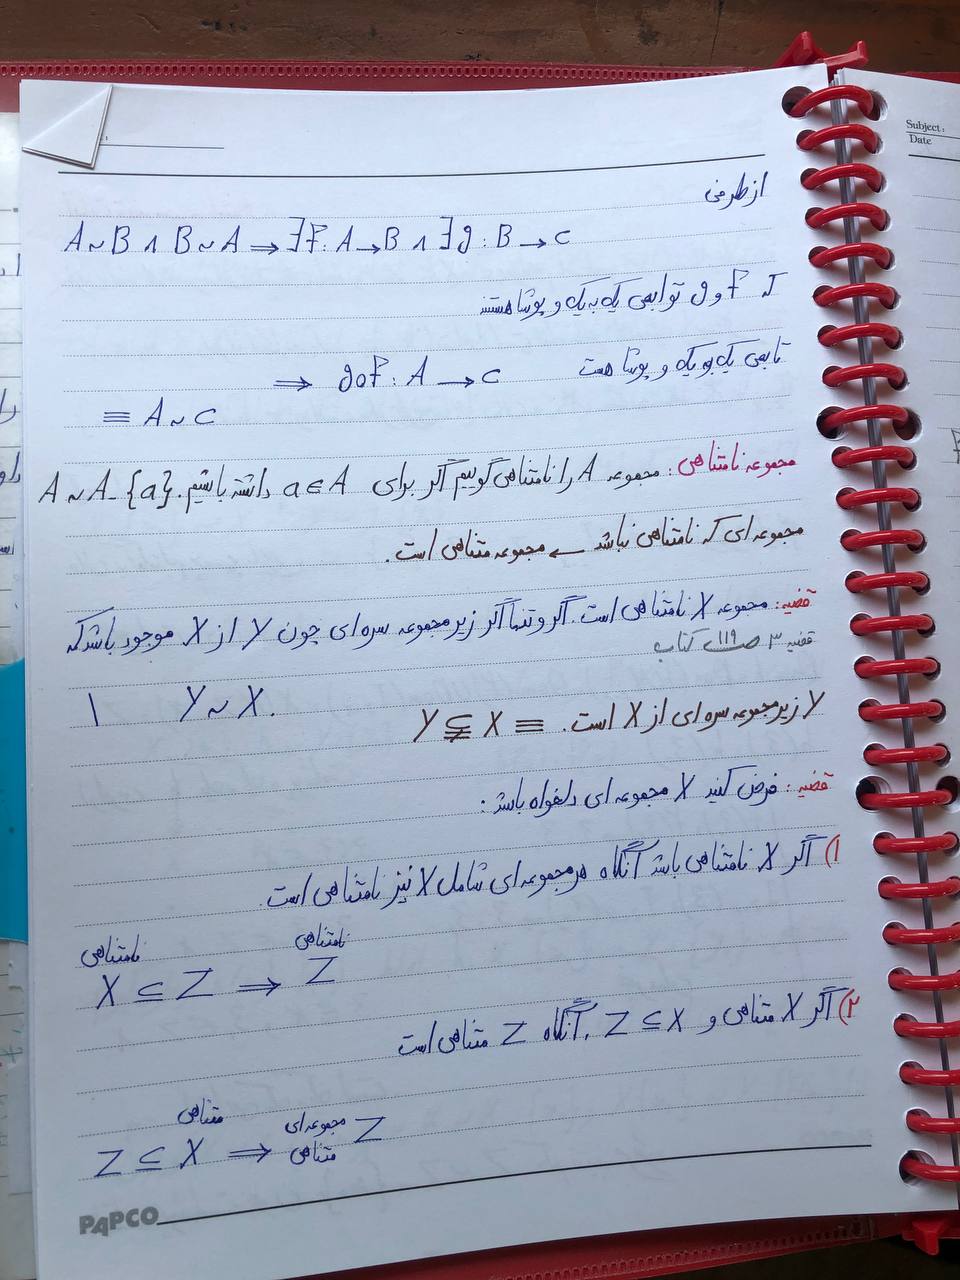 Subject:
Date
از طرفی
A ~ B ∧ B ~ A ⇒ ∃f: A → B ∧ ∃g : B → C
که f و g توابعی یک به یک و پوشا هستند
⇒ gof : A → C تابعی یک به یک و پوشا هست
≡ A ~ C
مجموعه نامتناهی: مجموعه A را نامتناهی گوییم اگر برای a ∈ A داشته باشیم. A ~ A - {a}
مجموعه ای که نامتناهی نباشد ← مجموعه متناهی است.
قضیه: مجموعه X نامتناهی است. اگر و تنها اگر زیر مجموعه سره ای چون Y از X موجود باشد که
قضیه ۳ ص ۱۱۹ کتاب
Y ~ X. ۱
Y زیر مجموعه سره ای از X است. ≡ Y ⊊ X
قضیه: فرض کنید X مجموعه ای دلخواه باشد:
۱) اگر X نامتناهی باشد آنگاه هر مجموعه ای شامل X نیز نامتناهی است.
نامتناهی نامتناهی
X ⊆ Z ⇒ Z
۲) اگر X متناهی و Z ⊆ X، آنگاه Z متناهی است
متناهی
Z ⊆ X ⇒ مجموعه ای متناهی Z
PAPCO